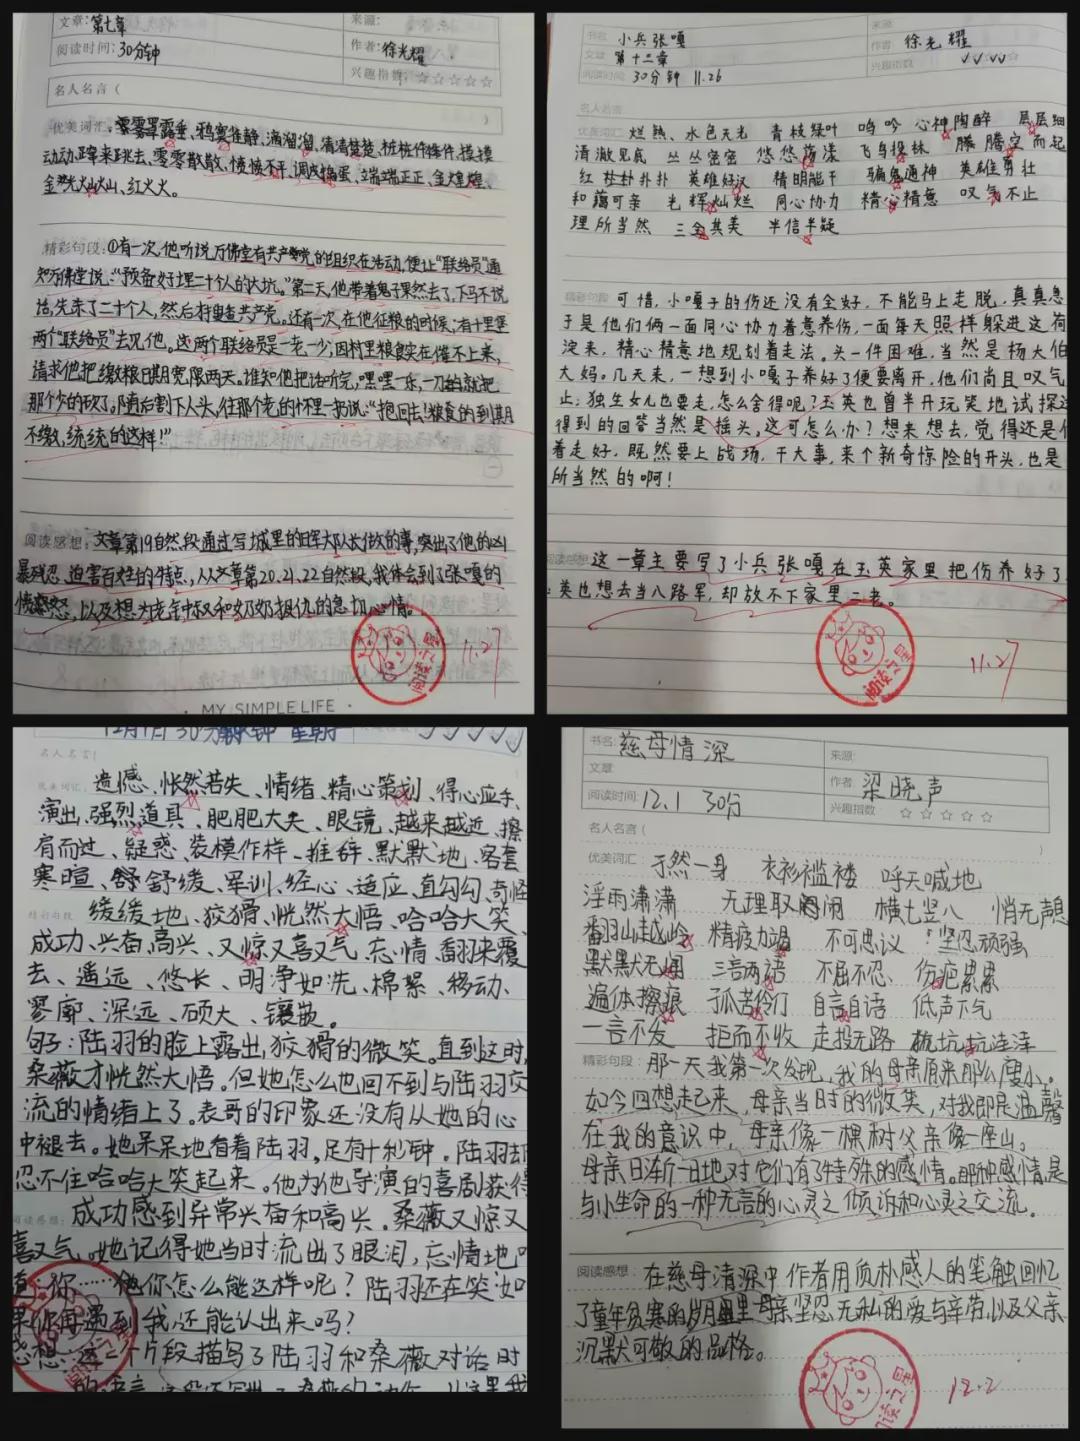 文章: 第七章
来源:
阅读时间: 30分钟
作者: 徐光耀
兴趣指数: ☆☆☆☆☆
名人名言(
)
优美词汇: 零零散散、愤愤不平、调皮捣蛋、端端正正、金煌煌、
金光火山、红火火。
精彩句段: ①有一次,他听说万佛堂有共产党的组织在活动,便让“联络员”通
知万佛堂说:“预备好埋二十个人的大坑。”第二天,他带着鬼子果然去了,下马不说
话,先杀了二十个人,然后才查共产党。还有一次,在他征粮的时候,有十里堡
两个“联络员”去见他。这两个联络员是一老一少,因村里粮食实在催不上来,
请求他把缴粮日期宽限两天。谁知他把话听完,嘿嘿一乐,一刀就把
那个少的砍了,随后割下人头,往那个老的怀里一扔说:“抱回去!粮食的到期
不缴,统统的这样!”
阅读感想: 文章第19自然段通过写城里的日军大队长做的事,突出了他的凶
暴残忍、迫害百姓的特点,从文章第20.21.22自然段,我体会到了张嘎的
愤怒,以及想为老钟叔和奶奶报仇的急切心情。
阅读之星
11.27
MY SIMPLE LIFE
书名 小兵张嘎
来源
文章 第十二章
作者 徐光耀
阅读时间 30分钟 11.26
兴趣指数
名人名言
优美词汇 烂熟、水色天光 青枝绿叶 呜吟 心神陶醉 层层细
清澈见底 丛丛密密 悠悠荡漾 飞鸟投林 腾腾空而起
红 扑扑 英雄好汉 精明能干 骗鬼通神 英雄勇壮
和蔼可亲 光辉灿烂 同心协力 精心精意 叹气不止
理所当然 三全其美 半信半疑
精彩句段 可惜,小嘎子的伤还没有全好,不能马上走脱,真真急
于是他们俩一面同心协力着意养伤,一面每天照样躲进这荷
淀来,精心精意地规划着走法。头一件困难,当然是杨大伯
大妈。几天来,一想到小嘎子养好了便要离开,他们尚且叹气
止;独生女儿也要走,怎么舍得呢?玉英也曾半开玩笑地试探过
得到的回答当然是摇头,这可怎么办?想来想去,觉得还是
着走好,既然要上战场,干大事,来个新奇惊险的开头,也是
所当然的啊!
阅读感想 这一章主要写了小兵张嘎在玉英家里把伤养好了
英也想去当八路军,却放不下家里二老。
阅读之星
11.27
12月1日 30分钟
名人名言(
优美词汇: 遗憾、怅然若失、情绪、精心策划、得心应手、
演出、强烈道具、肥肥大大、眼镜、越来越近、擦
肩而过、疑惑、装模作样、推辞、默默地、客套
寒暄、舒缓、军训、经心、适应、直勾勾、奇怪
精彩句段 缓缓地、狡猾、恍然大悟、哈哈大笑、
成功、兴奋、高兴、又惊又喜又气、忘情、翻来覆
去、遥远、悠长、明净如洗、棉絮、移动、
寥廓、深远、硕大、镶嵌。
句子:陆羽的脸上露出狡猾的微笑。直到这时,
桑薇才恍然大悟。但她怎么也回不到与陆羽交
流的情绪上了。表哥的印象还没有从她的心
中褪去。她呆呆地看着陆羽,足有十秒钟。陆羽却
忍不住哈哈大笑起来。他为他导演的喜剧获得
阅读感想: 成功感到异常兴奋和高兴。桑薇又惊又
喜又气。她记得她当时流出了眼泪,忘情地
道:你……你怎么能这样呢?陆羽还在笑:如
果你再遇到我,还能认出来吗?
感想:这一个片段描写了陆羽和桑薇对话时
书名: 慈母情深
来源:
文章
作者 梁晓声
阅读时间: 12.1 30分
兴趣指数 ☆☆☆☆☆
名人名言(
)
优美词汇 孑然一身 衣衫褴褛 呼天喊地
淫雨潇潇 无理取闹 横七竖八 悄无声息
翻山越岭 精疲力竭 不可思议 坚忍顽强
默默无闻 三言两语 不屈不忍 伤疤累累
遍体擦痕 孤苦伶仃 自言自语 低声下气
一言不发 拒而不收 走投无路 坑坑洼洼
精彩句段: 那一天我第一次发现,我的母亲原来那么瘦小。
如今回想起来,母亲当时的微笑,对我即是温馨
在我的意识中,母亲像一棵树父亲像一座山。
母亲日渐一日地对它们有了特殊的感情。那种感情是
与小生命的一种无言的心灵之倾诉和心灵之交流。
阅读感想: 在慈母情深中作者用质朴感人的笔触回忆
了童年贫寒的岁月里母亲坚忍无私的爱与辛劳以及父亲
沉默可敬的品格。
阅读之星
12.2